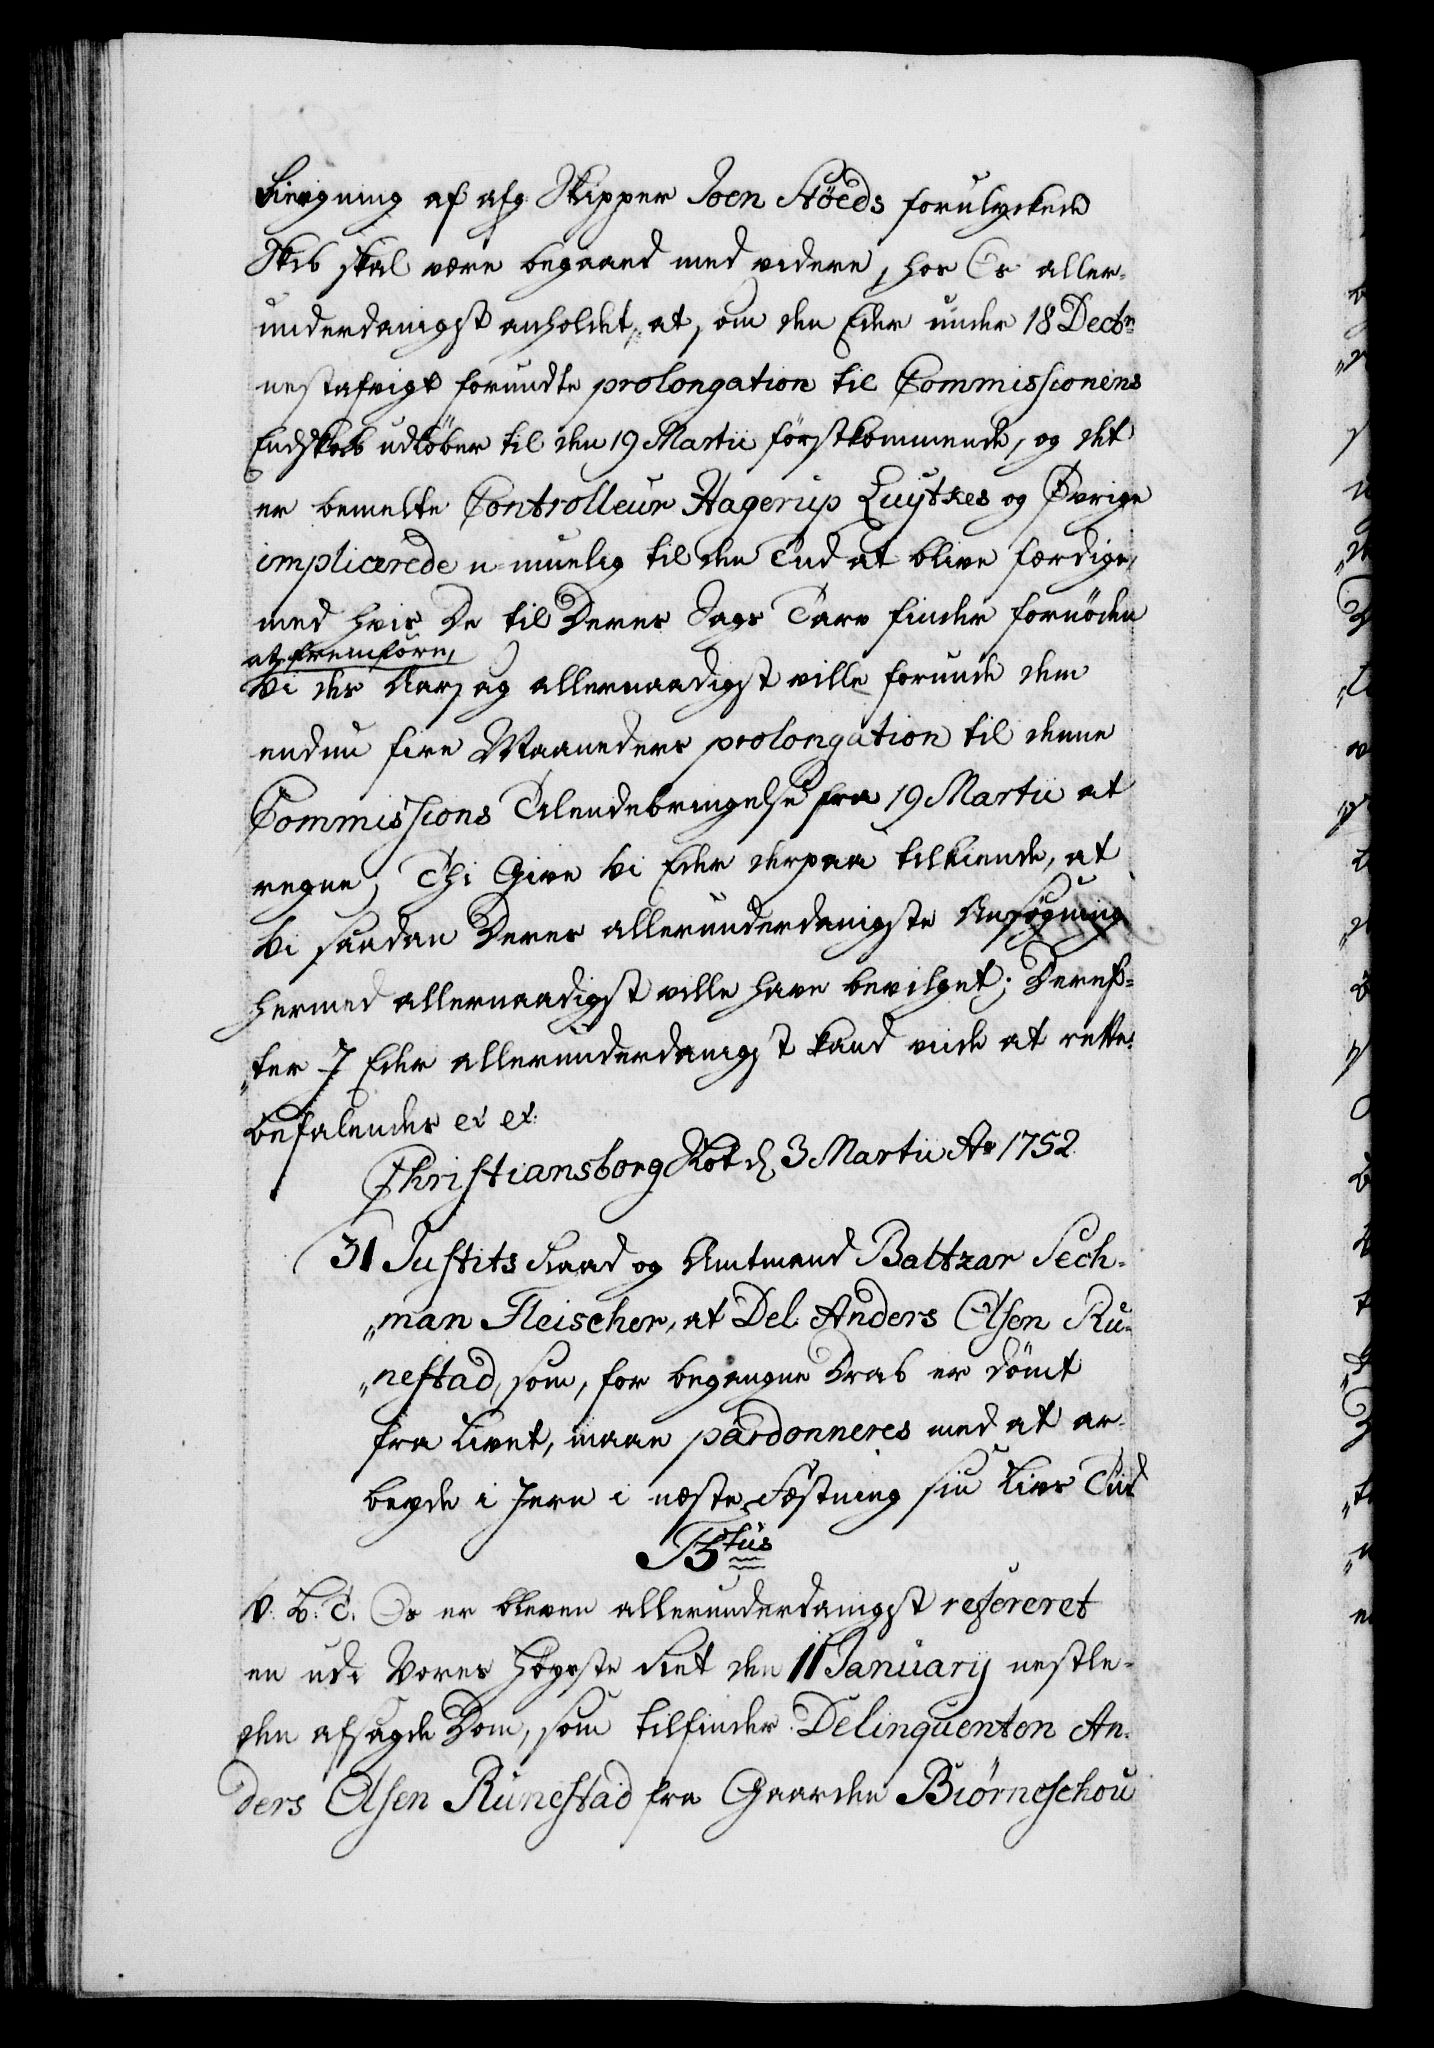 biergning af afg. Skipper Joen Stöeds forulyckede
Skib skal være begaaed med videre, hos Os aller-
underdanigst anholdet, at, om den Eder under 18 Decbr
nestafvigt forundte prolongation til Commissionens
Endskab udlöber til den 19 Martii förstkommende, og det
er bemelte Controlleur Hagerup Luytkes og Øvrige
implicerede u-muelig til den Tiid at blive færdige,
med hvis De til Deres Sags Tarv finder fornöden
at fremföre,
Vi der Aarsag allernaadigst ville forunde dem
endnu fire Maaneders prolongation til denne
Commissions Tilendebringelse fra 19 Martii at
regne; Thi Give Vi Eder derpaa tilkiende, at
Vi saadan Deres allerunderdanigste Ansøgning
hermed allernaadigst ville have bevilget; Deref-
„ter I Eder allerunderdanigst kand viide at rette.
befalendes et et.
Christiansborg Slot d. 3 Martii Ao 1752
31 Justits Raad og Amtmand Baltzar Sech-
„man Fleischer, at Del. Anders Olsen Ru-
„nestad, som, for begangne Drab er dömt
fra Livet, maae pardonneres med at ar-
beyde i Jern i næste Fæstning sin Livs Tiid
F5tus
V. G. T. Os er bleven allerunderdanigst refereret
en udi Vores Høyeste Ret den 11 Januarij nestle-
den afsagde Dom, som tilfinder Delinquenten An-
ders Olsen Runestad fra Gaarden Biörneschou